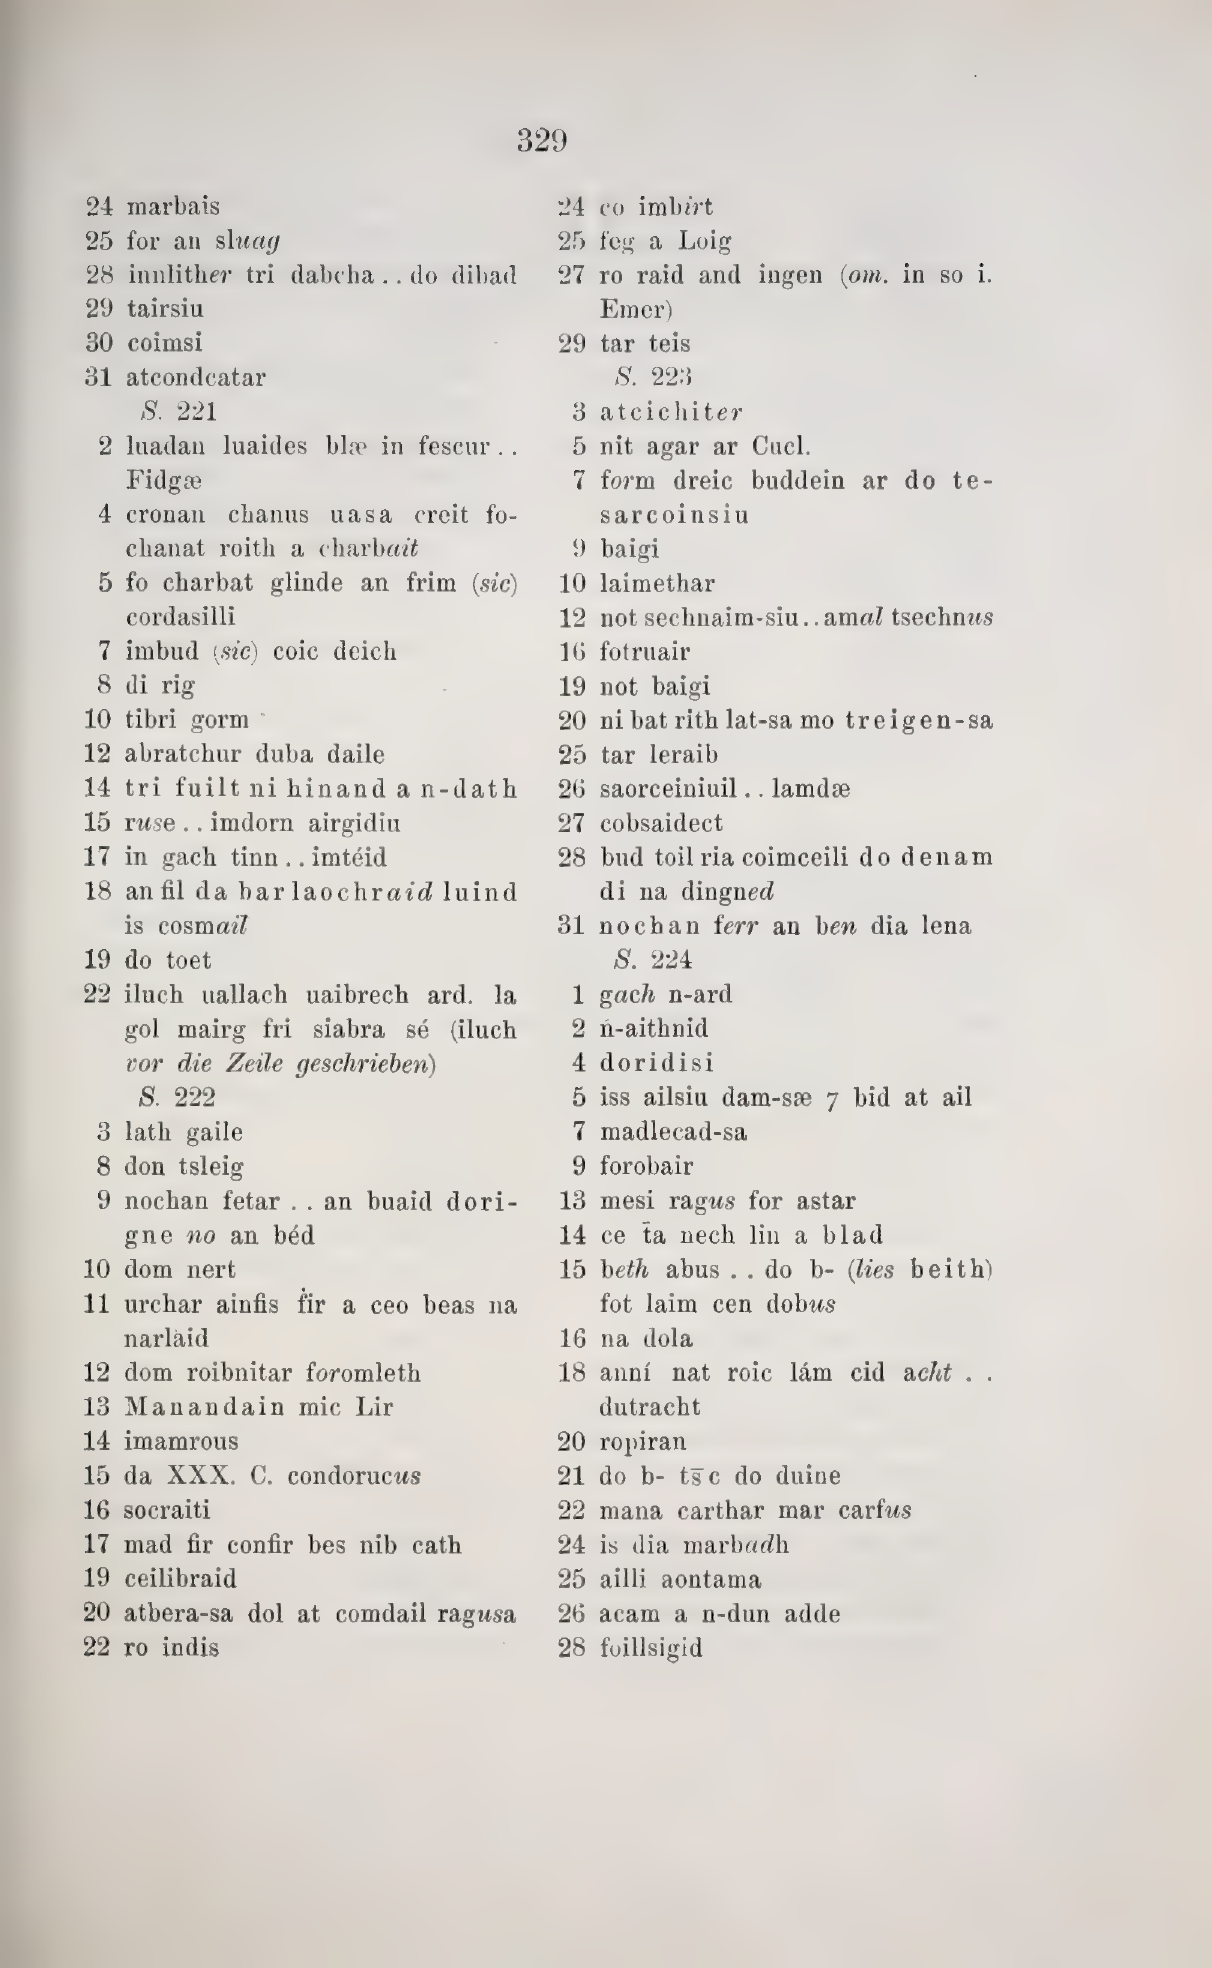 329
24 marbais
25 for an sluag
28 innlither tri dabcha . . do dibad
29 tairsiu
30 coimsi
31 atcondcatar
S. 221
2 luadan luaides blæ in fescur . .
Fidgæ
4 cronan chanus uasa creit fo-
chanat roith a charbait
5 fo charbat glinde an frim (sic)
cordasilli
7 imbud (sic) coic deich
8 di rig
10 tibri gorm
12 abratchur duba daile
14 tri fuilt ni hinand a n-dath
15 ruse . . imdorn airgidiu
17 in gach tinn . . imtéid
18 an fil da bar laochraid luind
is cosmail
19 do toet
22 iluch uallach uaibrech ard. la
gol mairg fri siabra sé (iluch
vor die Zeile geschrieben)
S. 222
3 lath gaile
8 don tsleig
9 nochan fetar . . an buaid dori-
gne no an béd
10 dom nert
11 urchar ainfis ḟir a ceo beas na
narlàid
12 dom roibnitar foromleth
13 Manandain mic Lir
14 imamrous
15 da XXX. C. condorucus
16 socraiti
17 mad fir confir bes nib cath
19 ceilibraid
20 atbera-sa dol at comdail ragusa
22 ro indis
24 co imbirt
25 feg a Loig
27 ro raid and ingen (om. in so i.
Emer)
29 tar teis
S. 223
3 atcichiter
5 nit agar ar Cucl.
7 form dreic buddein ar do te-
sarcoinsiu
9 baigi
10 laimethar
12 not sechnaim-siu . . amal tsechnus
16 fotruair
19 not baigi
20 ni bat rith lat-sa mo treigen-sa
25 tar leraib
26 saorceiniuil . . lamdæ
27 cobsaidect
28 bud toil ria coimceili do denam
di na dingned
31 nochan ferr an ben dia lena
S. 224
1 gach n-ard
2 ṅ-aithnid
4 doridisi
5 iss ailsiu dam-sæ ⁊ bid at ail
7 madlecad-sa
9 forobair
13 mesi ragus for astar
14 ce t̄a nech lin a blad
15 beth abus . . do b- (lies beith)
fot laim cen dobus
16 na dola
18 anní nat roic lám cid acht . .
dutracht
20 ropiran
21 do b- ts̄c do duine
22 mana carthar mar carfus
24 is dia marbadh
25 ailli aontama
26 acam a n-dun adde
28 foillsigid